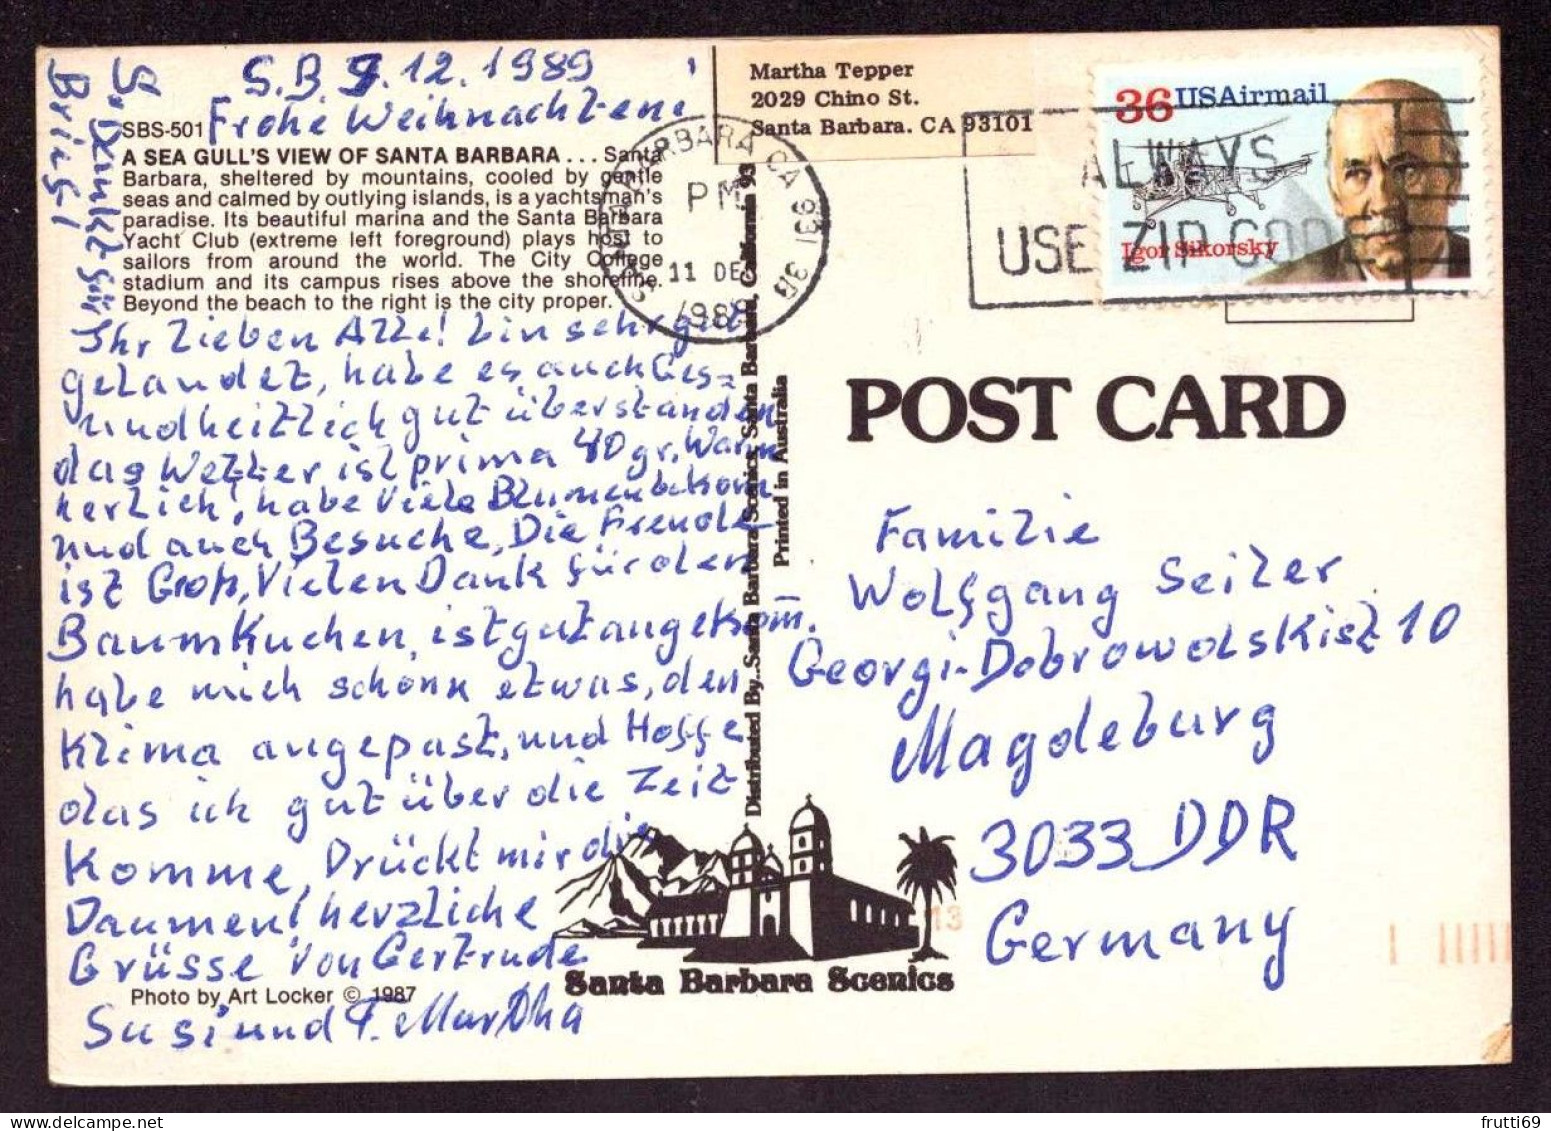 S.B. 9.12.1989
Frohe Weihnachten!
SBS-501
A SEA GULL'S VIEW OF SANTA BARBARA . . . Santa
Barbara, sheltered by mountains, cooled by gentle
seas and calmed by outlying islands, is a yachtsman's
paradise. Its beautiful marina and the Santa Barbara
Yacht Club (extreme left foreground) plays host to
sailors from around the world. The City College
stadium and its campus rises above the shoreline.
Beyond the beach to the right is the city proper.
Ihr lieben Alle! Bin sehr gut
gelandet, habe es auch Ges=
undheitlich gut überstanden
das Wetter ist prima 40 gr. Warm
herlich, habe viele Blumen bekom
und auch Besuche, Die Freude
ist Groß, Vielen Dank für den
Baumkuchen, ist gut angekom.
habe mich schonn etwas, den
Klima angepast, und Hoffe
das ich gut über die Zeit
Komme, Drückt mir die
Daumen! herzliche
Grüsse von Gertrude
Susi und T. Martha
Photo by Art Locker © 1987
S. Dankt für
Brief!
Martha Tepper
2029 Chino St.
Santa Barbara. CA 93101
SANTA BARBARA CA 931
PM
11 DE
1989
ALWAYS
USE ZIP CODE
36 USAirmail
Igor Sikorsky
Distributed By...Santa Barbara Scenics, Santa Barbara, California 93
Printed in Australia
POST CARD
Familie
Wolfgang Seiler
Georgi-Dobrowolskistz 10
Magdeburg
3033 DDR
Germany
13
Santa Barbara Scenics
frutti69